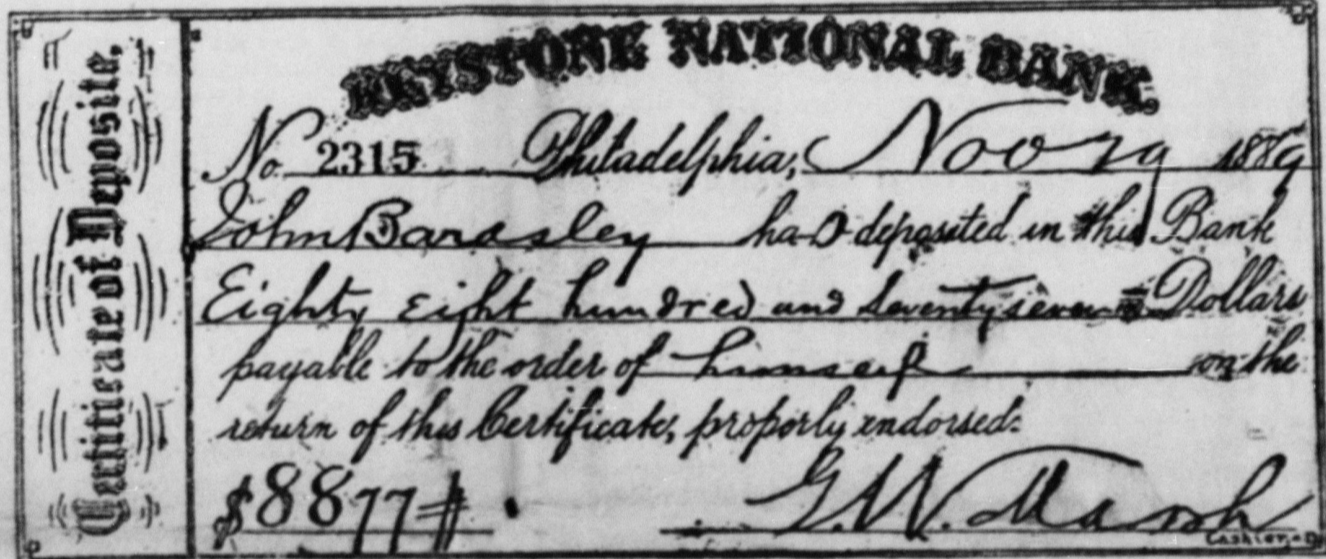 Certificate of Deposite,
KEYSTONE NATIONAL BANK.
No. 2315 Philadelphia, Nov 29 1889
John Bardsley has deposited in this Bank
Eighty eight hundred and seventy seven Dollars
payable to the order of himself on the
return of this Certificate, properly endorsed.
$8877
G.W. Marsh
Cashier